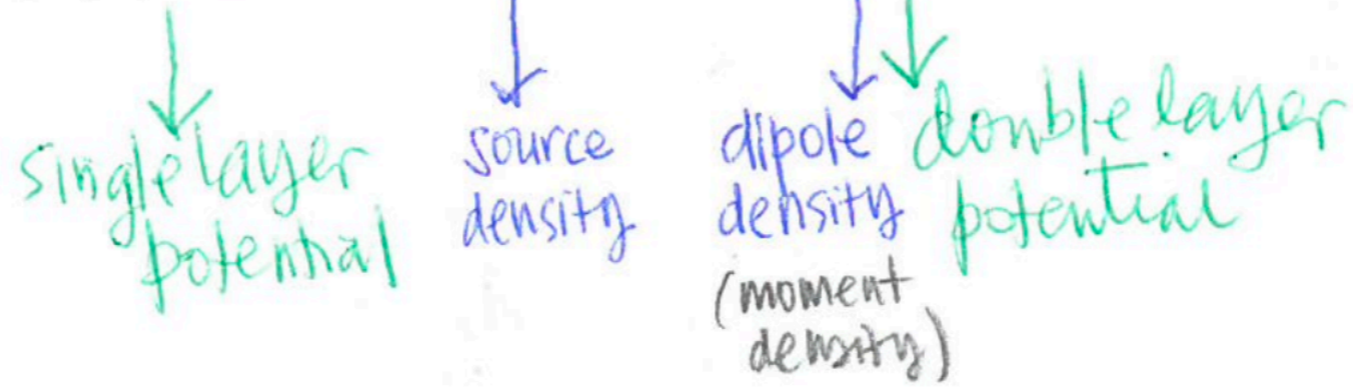 single layer
potential
source
density
dipole
density
(moment
density)
double layer
potential